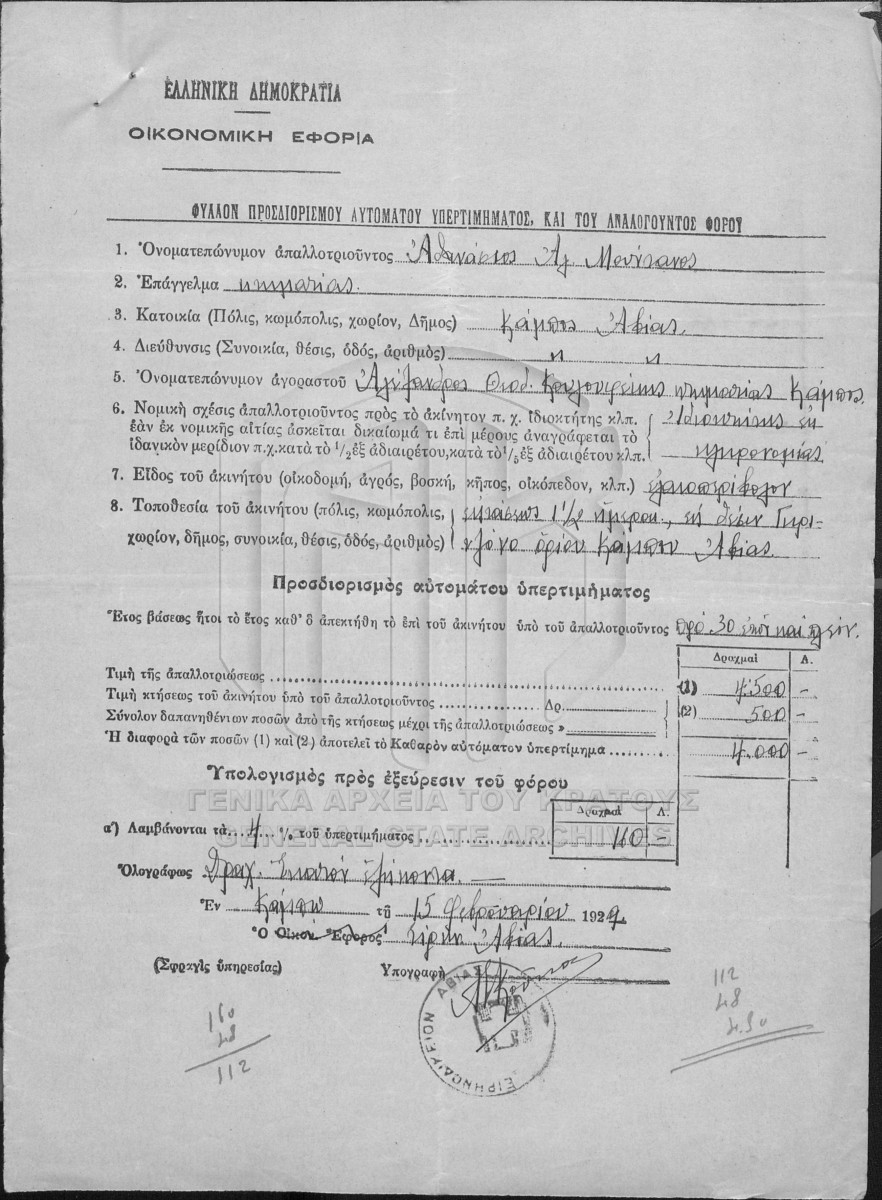 ΕΛΛΗΝΙΚΗ ΔΗΜΟΚΡΑΤΙΑ
ΟΙΚΟΝΟΜΙΚΗ ΕΦΟΡΙΑ
ΦΥΛΛΟΝ ΠΡΟΣΔΙΟΡΙΣΜΟΥ ΑΥΤΟΜΑΤΟΥ ΥΠΕΡΤΙΜΗΜΑΤΟΣ, ΚΑΙ ΤΟΥ ΑΝΑΛΟΓΟΥΝΤΟΣ ΦΟΡΟΥ
1. Ὀνοματεπώνυμον ἀπαλλοτριοῦντος Ἀθανάσιος Ἀγ.
2. Ἐπάγγελμα κτηματίας
3. Κατοικία (Πόλις, κωμόπολις, χωρίον, Δῆμος) Κάμπος Ἀβίας
4. Διεύθυνσις (Συνοικία, θέσις, ὁδός, ἀριθμὸς) " "
5. Ὀνοματεπώνυμον ἀγοραστοῦ Ἀλέξανδρος Θεοδ. κτηματίας Κάμπος
6. Νομικὴ σχέσις ἀπαλλοτριοῦντος πρὸς τὸ ἀκίνητον π. χ. ἰδιοκτήτης κλπ. Ἰδιοκτήτης ἐκ
ἐὰν ἐκ νομικῆς αἰτίας ἀσκεῖται δικαίωμά τι ἐπὶ μέρους ἀναγράφεται τὸ
ἰδανικὸν μερίδιον π.χ. κατὰ τὸ 1/2 ἐξ ἀδιαιρέτου, κατὰ τὸ 1/5 ἐξ ἀδιαιρέτου κλπ. κληρονομίας
7. Εἶδος τοῦ ἀκινήτου (οἰκοδομή, ἀγρός, βοσκή, κῆπος, οἰκόπεδον, κλπ.) ἐλαιοπερίβολον
8. Τοποθεσία τοῦ ἀκινήτου (πόλις, κωμόπολις, ἐκτάσεως 1 1/2 ἡμερομ., ἐν θέσει
χωρίον, δῆμος, συνοικία, θέσις, ὁδός, ἀριθμὸς) ὁρίου Κάμπου Ἀβίας
Προσδιορισμὸς αὐτομάτου ὑπερτιμήματος
Ἔτος βάσεως ἤτοι τὸ ἔτος καθ' ὃ ἀπεκτήθη τὸ ἐπὶ τοῦ ἀκινήτου ὑπὸ τοῦ ἀπαλλοτριοῦντος πρὸ 30 ἐτῶν καὶ πλέον.
Δραχμαὶ Λ.
Τιμὴ τῆς ἀπαλλοτριώσεως (1) 4.500 -
Τιμὴ κτήσεως τοῦ ἀκινήτου ὑπὸ τοῦ ἀπαλλοτριοῦντος Δρ. (2) 500 -
Σύνολον δαπανηθέντων ποσῶν ἀπὸ τῆς κτήσεως μέχρι τῆς ἀπαλλοτριώσεως »
Ἡ διαφορὰ τῶν ποσῶν (1) καὶ (2) ἀποτελεῖ τὸ Καθαρὸν αὐτόματον ὑπερτίμημα 4.000 -
Ὑπολογισμὸς πρὸς ἐξεύρεσιν τοῦ φόρου
ΓΕΝΙΚΑ ΑΡΧΕΙΑ ΤΟΥ ΚΡΑΤΟΥΣ
GENERAL STATE ARCHIVES
Δραχμαὶ Λ.
α') Λαμβάνονται τὰ 4 % τοῦ ὑπερτιμήματος 160 -
Ὁλογράφως Δραχ. Ἑκατὸν ἑξήκοντα
Ἐν Κάμπῳ τῇ 15 Φεβρουαρίου 1929
Ὁ Οἰκον. Ἔφορος Εἰρην. Ἀβίας
(Σφραγὶς ὑπηρεσίας) Ὑπογραφὴ
ΕΙΡΗΝΟΔΙΚΕΙΟΝ ΑΒΙΑΣ
160
48
112
112
48